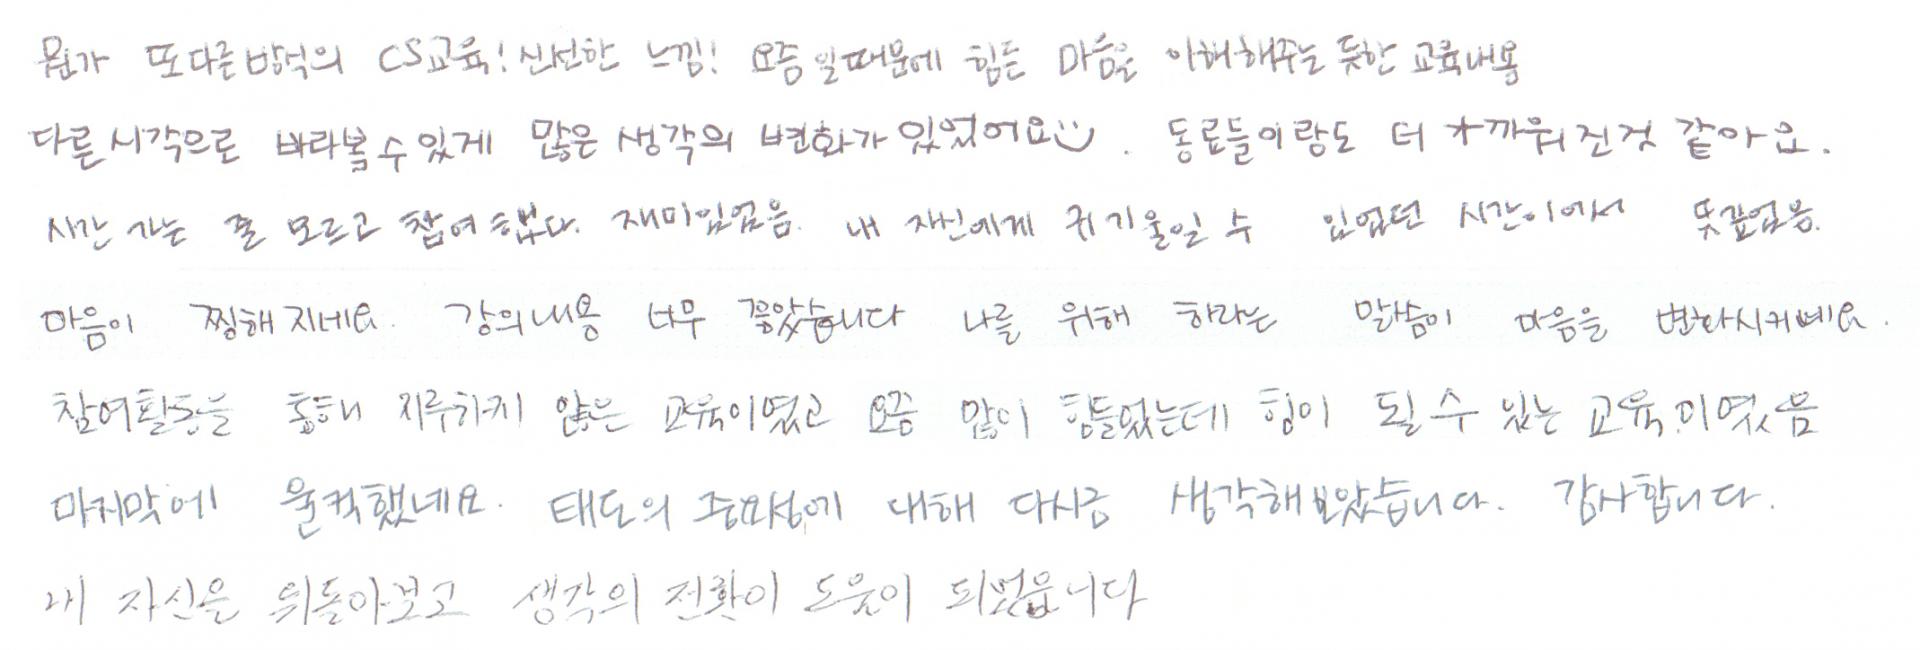 뭔가 또다른방식의 CS교육! 신선한 느낌! 요즘일때문에 힘든 마음을 이해해주는듯한 교육내용
다른시각으로 바라볼수있게 많은생각의 변화가있었어요. 동료들이랑도 더 가까워진것 같아요.
시간 가는 줄 모르고 참여했다. 재미있었음. 내 자신에게 귀기울일 수 있었던 시간이어서 뜻깊었음.
마음이 찡해지네요. 강의내용 너무 좋았습니다 나를 위해 하라는 말씀이 마음을 변화시키네요.
참여활동을 통해 지루하지 않은 교육이였고 요즘 많이 힘들었는데 힘이 될수 있는 교육이였음
마지막에 울컥했네요. 태도의 중요성에 대해 다시금 생각해보았습니다. 감사합니다.
내 자신을 뒤돌아보고 생각의 전환이 도움이 되었읍니다